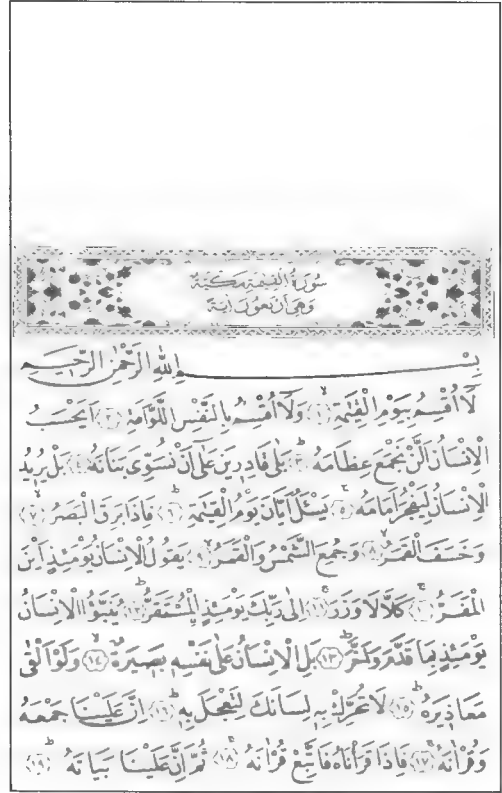 سُورَةُ الْقِيٰمَةِ مَكِّيَّةٌ
وَهِيَ اَرْبَعُونَ اٰيَةً
بِسْمِ اللهِ الرَّحْمٰنِ الرَّحِيمِ
لَٓا اُقْسِمُ بِيَوْمِ الْقِيٰمَةِۙ ﴿١﴾ وَلَٓا اُقْسِمُ بِالنَّفْسِ اللَّوَّامَةِ ﴿٢﴾ اَيَحْسَبُ
الْاِنْسَانُ اَلَّنْ نَجْمَعَ عِظَامَهُ ﴿٣﴾ بَلٰى قَادِرِينَ عَلٰٓى اَنْ نُسَوِّيَ بَنَانَهُ ﴿٤﴾ بَلْ يُرِيدُ
الْاِنْسَانُ لِيَفْجُرَ اَمَامَهُۚ ﴿٥﴾ يَسْـَٔلُ اَيَّانَ يَوْمُ الْقِيٰمَةِۜ ﴿٦﴾ فَاِذَا بَرِقَ الْبَصَرُۙ ﴿٧﴾
وَخَسَفَ الْقَمَرُۙ ﴿٨﴾ وَجُمِعَ الشَّمْسُ وَالْقَمَرُۙ ﴿٩﴾ يَقُولُ الْاِنْسَانُ يَوْمَئِذٍ اَيْنَ
الْمَفَرُّۚ ﴿١٠﴾ كَلَّا لَا وَزَرَۜ ﴿١١﴾ اِلٰى رَبِّكَ يَوْمَئِذٍ الْمُسْتَقَرُّۜ ﴿١٢﴾ يُنَبَّؤُا الْاِنْسَانُ
يَوْمَئِذٍ بِمَا قَدَّمَ وَاَخَّرَۜ ﴿١٣﴾ بَلِ الْاِنْسَانُ عَلٰى نَفْسِهِ بَصِيرَةٌۙ ﴿١٤﴾ وَلَوْ اَلْقٰى
مَعَاذِيرَهُۜ ﴿١٥﴾ لَا تُحَرِّكْ بِهِ لِسَانَكَ لِتَعْجَلَ بِهِۜ ﴿١٦﴾ اِنَّ عَلَيْنَا جَمْعَهُ
وَقُرْاٰنَهُۚ ﴿١٧﴾ فَاِذَا قَرَأْنَاهُ فَاتَّبِعْ قُرْاٰنَهُۚ ﴿١٨﴾ ثُمَّ اِنَّ عَلَيْنَا بَيَانَهُۜ ﴿١٩﴾